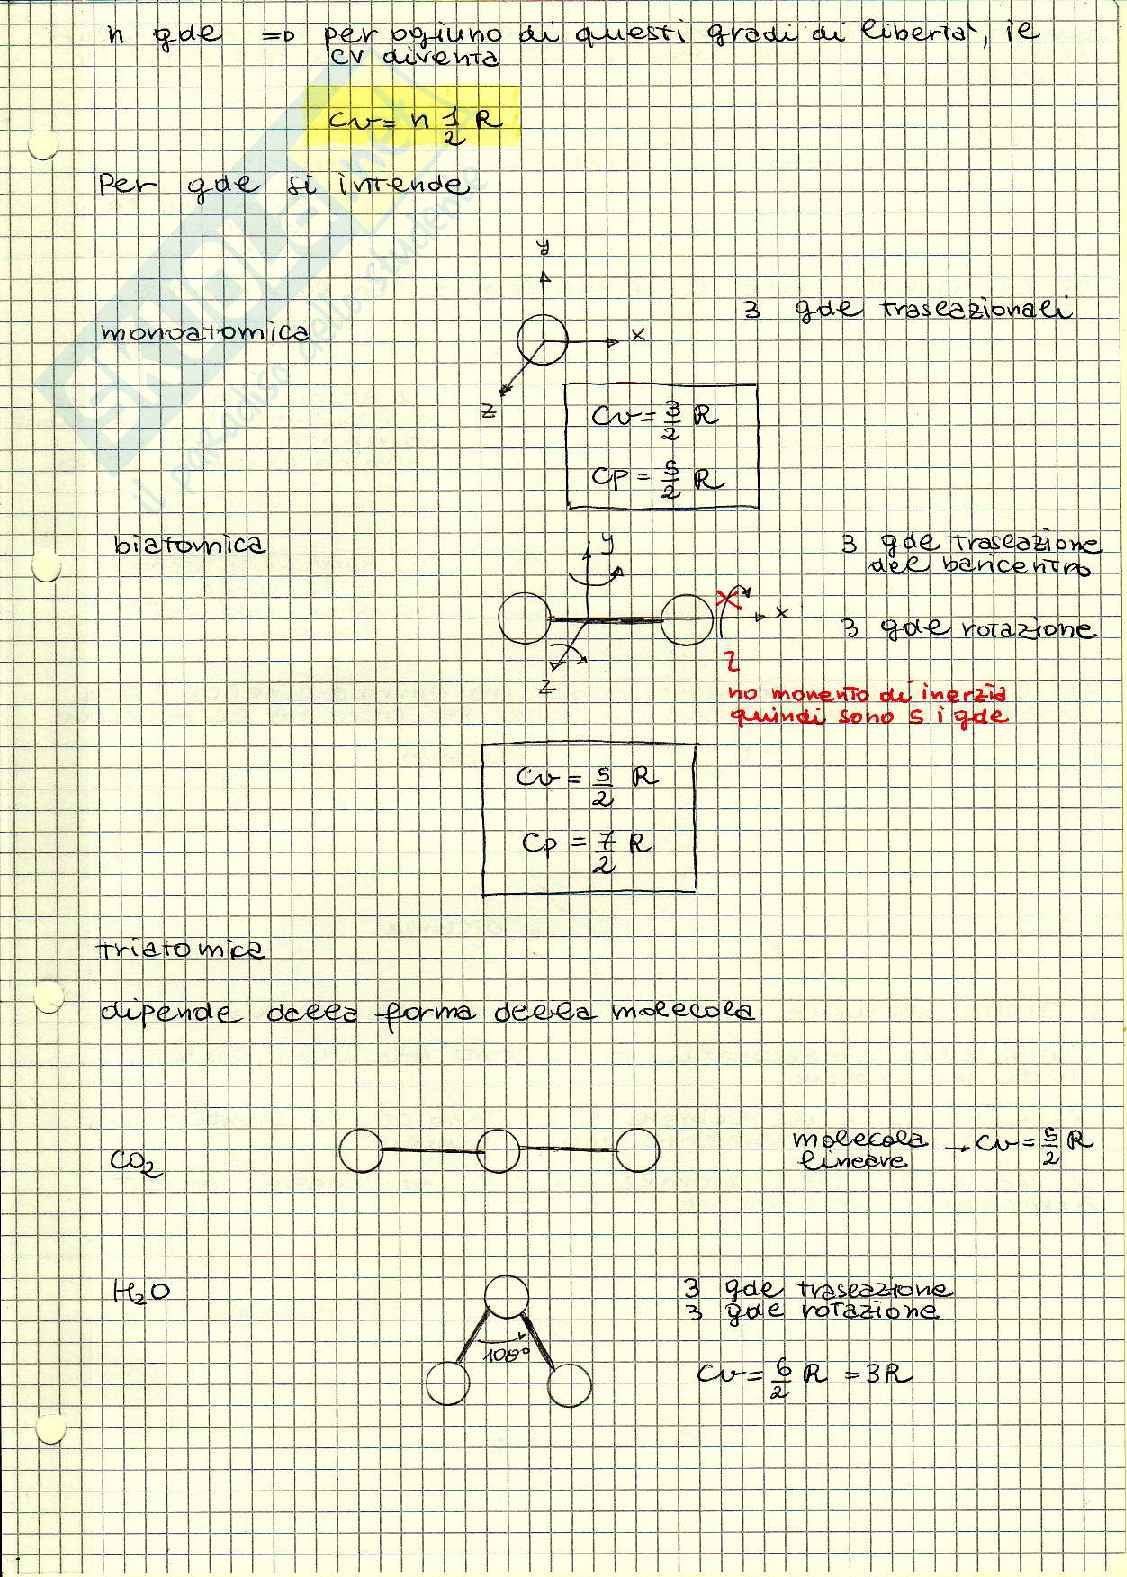 n gdl => per ogniuno di questi gradi di libertà, il
cv diventa
cv = n 1/2 R
Per gdl si intende
y
monoatomica
x
z
3 gdl traslazionali
Cv = 3/2 R
Cp = 5/2 R
biatomica
y
x
z
3 gdl traslazione
del baricentro
3 gdl rotazione
no momento di inerzia
quindi sono 5 i gdl
Cv = 5/2 R
Cp = 7/2 R
triatomica
dipende dalla forma della molecola
CO2
molecola → Cv = 5/2 R
lineare
H2O
3 gdl traslazione
3 gdl rotazione
Cv = 6/2 R = 3R
SKUOLA.net
il paradiso dello studente